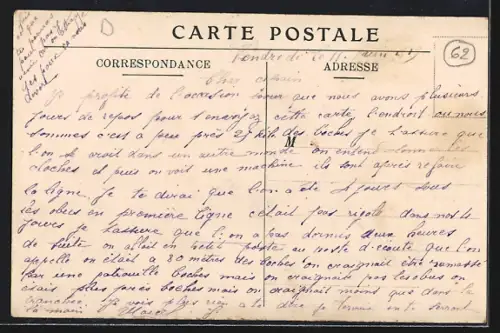 CARTE POSTALE
CORRESPONDANCE
ADRESSE
62
M
Vendredi le 11
Cher
Je profite de l'occasion pour que nous avons plusieurs
jours de repos pour t'envoyer cette carte l'endroit ou nous
sommes c'est a peu près kilo des boches je t'assure que
l'on se croit dans un autre monde on entend sonner les
cloches et puis on voit une machine ils sont après refaire
la ligne je te dirai que l'on a été 4 jours sous
les obus en première ligne c'était pas rigolo dans nos 4
jours je t'assure que l'on a pas dormis deux heures
de suite on allait en petit poste au poste d'écoute que l'on
appelle on était a 80 mètres des boches on craignait être ramassé
par une patrouille boches mais on craignait pas les obus on
était plus près boches mais on craignait moins que dans la
tranchée Je vois plus rien a te dire je termine en te serrant
la main Marcel